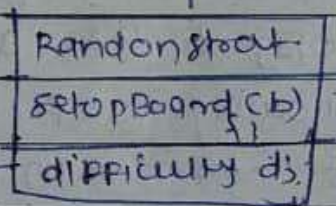 Randonstrat
setupBoard(b)
difficulty d;